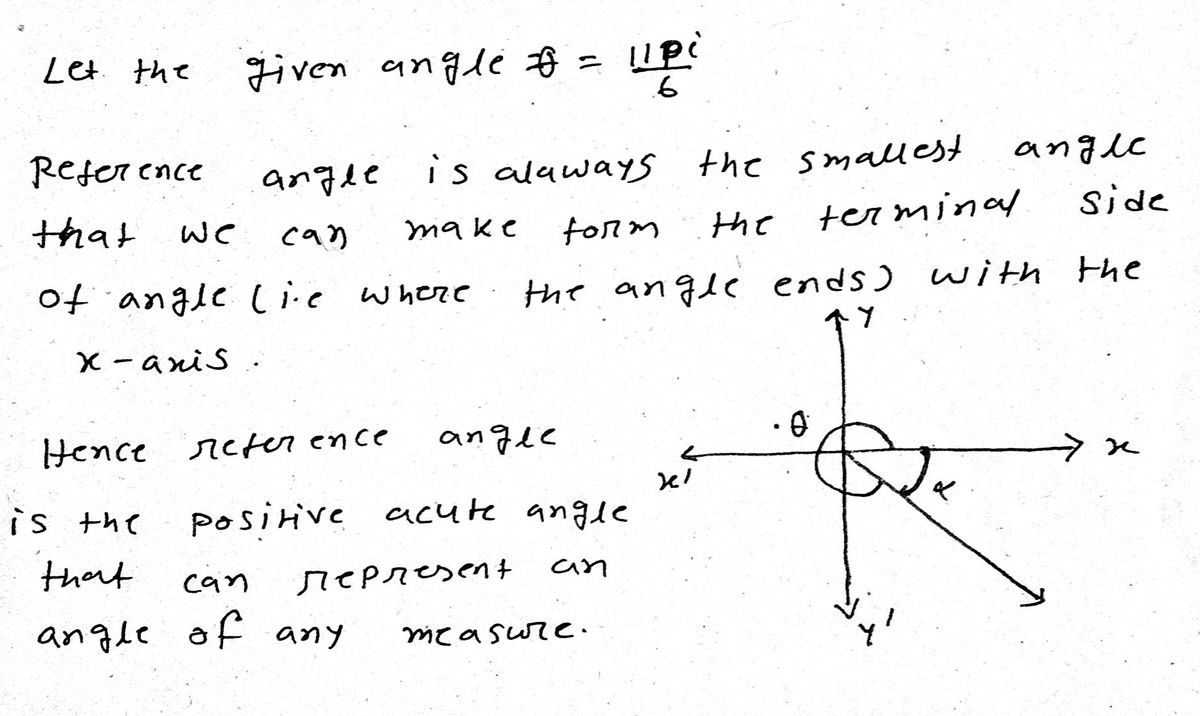 Let the given angle θ = 11pi/6
Reference angle is alaways the smallest angle
that we can make form the terminal side
of angle (i.e where the angle ends) with the
x-axis.
Y
Hence reference angle
θ
x
x'
α
is the positive acute angle
that can represent an
angle of any measure.
y'